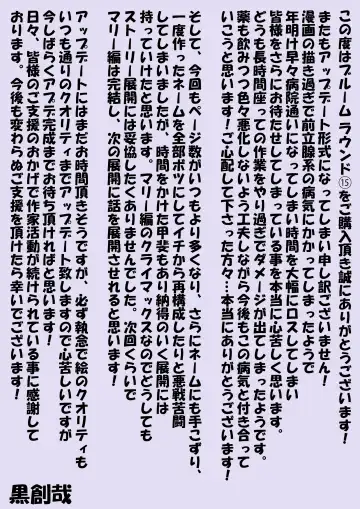 この度はブルーム ラウンド⑮をご購入頂き誠にありがとうございます！
またもアップデート形式になってしまい申し訳ございません！
漫画の描き過ぎで前立腺系の病気にかかってしまったようで
年明け早々病院通いになってしまい時間を大幅にロスしてしまい
皆様をさらにお待たせしてしまっている事を本当に心苦しく思います。
どうも長時間座っての作業をやり過ぎでダメージが出てしまったようです。
薬も飲みつつ色々悪化しないよう工夫しながら今後もこの病気と付き合って
いこうと思います！ご心配して下さった方々…本当にありがとうございます！
そして、今回もページ数がいつもより多くなり、さらにネームにも手こずり、
一度作ったネームを全部ボツにしてイチから再構成したりと悪戦苦闘
してしまいましたが、時間をかけた甲斐もあり納得のいく展開には
持っていけたと思います。マリー編のクライマックスなのでどうしても
ストーリー展開には妥協したくありませんでした。次回くらいで
マリー編は完結し、次の展開に話を展開させれると思います！
アップデートにはまだお時間頂きそうですが、必ず執念で絵のクオリティも
いつも通りのクオリティまでアップデート致しますので心苦しいですが
今しばらくアプデ完成までお待ち頂ければと思います！
日々、皆様のご支援のおかげで作家活動が続けられている事に感謝して
おります。今後も変わらぬご支援を頂けたら幸いでございます！
黒創哉